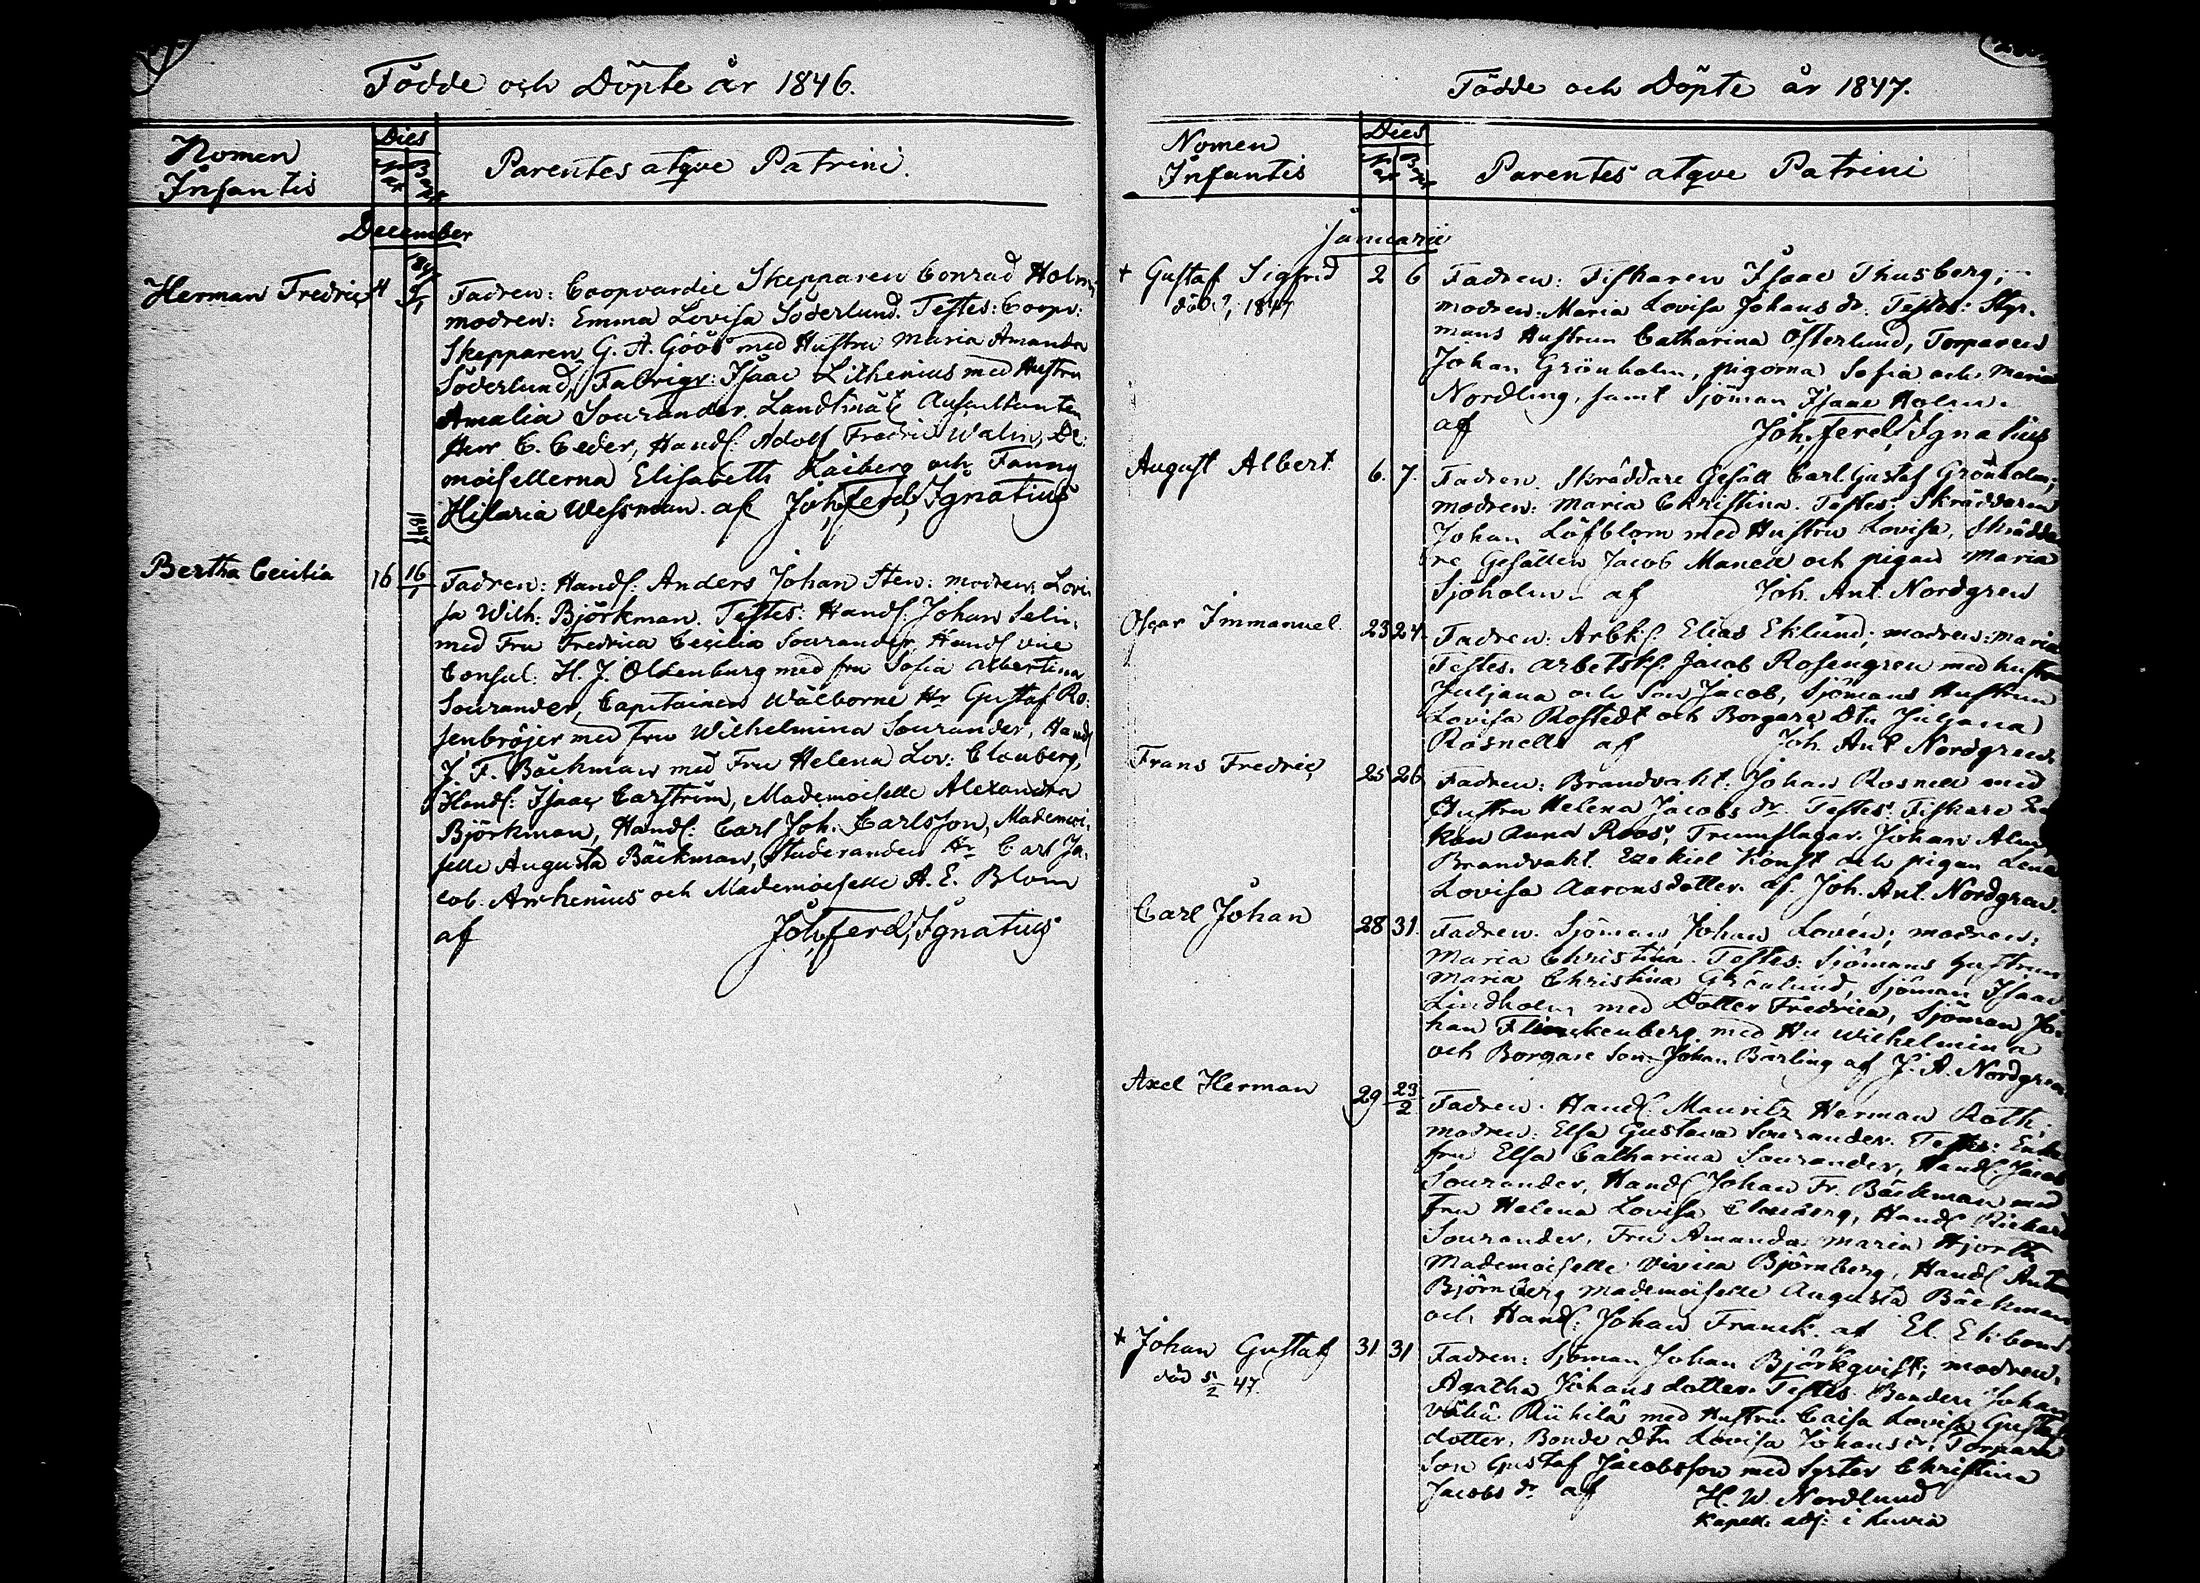 Födde och Döpte år 1846.
Nomen
Infantis
Dies
Parentes atqve Patrini.
December
Herman Fredric 4
1847
Fadren: Coopvardie Skepparen Conrad Holm;
modren: Emma Lovisa Söderlund. Testes: Coopv:
Skepparen G. A. Göös med Hustru Maria Amanda
Söderlund, Fabriqr: Isaac Lithenius med Hustru
Amalia Sourander. Landtmät Auscultanten
Herr C. Ceder, Handl: Adolf Fredric Walin, De-
moisellerna Elisabeth Laiberg och Fanny
Hilaria Wessman. af Joh. Ferd. Ignatius
1847
Bertha Cecilia 16 16/1
Fadren: Handl: Anders Johan Sten: modren: Lovi-
sa Wilh: Björkman. Testes: Handl: Johan Selin,
med Fru Fredrica Cecilia Sourander, Handl vice
Consul: H. J. Oldenburg med fru Sofia Albertina
Sourander, Capitainen Wälborne Hr Gustaf Ro-
senbröjer med fru Wilhelmina Sourander, Handl
J. F. Bäckman med Fru Helena Lov: Clouberg,
Handl: Isaac Carström, Mademoiselle Alexandra
Björkman, Handl: Carl Joh. Carlsson, Mademoi-
selle Augusta Bäckman, Studeranden Hr Carl Ja-
cob Arrhenius och Mademoiselle A. E. Blom
af Joh. Ferd. Ignatius
Födde och Döpte år 1847.
Nomen
Infantis
Dies
Parentes atqve Patrini
Januarii
+ Gustaf Sigfrid 2 6
1847
Fadren: Fiskaren Isaac Thusberg;
modren: Maria Lovisa Johans dr. Testes: Styr-
mans Hustrun Catharina Österlund, Torparen
Johan Grönholm, pigorna Sofia och Maria
Nordling, samt Sjöman Isaac Holm.
af Joh. Ferd. Ignatius
August Albert 6. 7.
Fadren. Skräddare Gesäll Carl Gustaf Grönholm;
modren: Maria Christina. Testes: Skräddaren
Johan Löfblom med Hustru Lovisa, Skrädda-
re Gesällen Jacob Manell och pigan Maria
Sjöholm. af Joh. Ant. Nordgren
Oscar Immanuel 23 24.
Fadren: Arbk: Elias Eklund; modren: Maria
Testes. Arbetsk: Jacob Rosengren med hustru
Juliana och Son Jacob, Sjömans Hustrun
Lovisa Rostedt och Borgare Dtr Juliana
Rosnell. af Joh. Ant Nordgren.
Frans Fredric 25 26
Fadren: Brandvakt. Johan Rosnell med
Hustru Helena Jacobs dr. Testes: Fiskare En-
kan Anna Roos, Trumslagar. Johan Alm,
Brandvakt. Ezekiel Konst och pigan Lena
Lovisa Aaronsdotter. af. Joh. Ant. Nordgren.
Carl Johan 28 31.
Fadren. Sjöman Johan Lovén; modren:
Maria Christina. Testes: Sjömans hustrun
Maria Christina Grönlund, Sjöman Isaac
Lindholm med Dotter Fredrica, Sjöman Jo-
han Flinckenberg med Hu Wilhelmina
och Borgare Son Johan Bärling af J. A. Nordgren
Axel Herman 29 23/2
Fadren. Handl: Mauritz Herman Roth;
modren: Elsa Gustava Sourander. Testes: Enke
fru Elsa Catharina Sourander, Handl Jacob
Sourander, Handl Johan Fr. Bäckman med
Fru Helena Lovisa Clouberg, Handl Richard
Sourander, Fru Amanda Maria Hjorth
Mademoiselle Vivica Björnberg, Handl Anton
Björnberg mademoiselle Augusta Bäckman
och Handl: Johan Franck. af El. Ekbom.
+ Johan Gustaf 31. 31
död 5/2 47.
Fadren: Sjöman Johan Björkqvist; modren.
Agatha Johans dotter. Testes Bonden Johan
Vähä Riihilä med Hustru Caisa Lovisa Gustaf-
dotter, Bonde Dtr Lovisa Johans dr, Torpare
Son Gustaf Jacobsson med Syster Christina
Jacobs dr af H. W. Nordlund
Kapell. adj: i Luvia